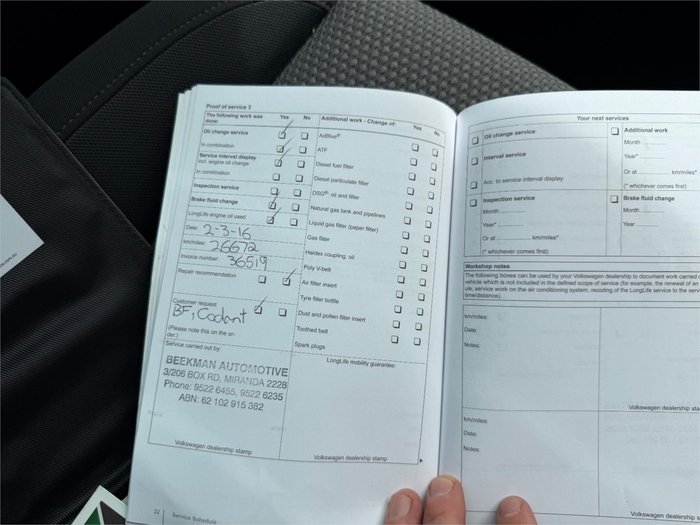 Proof of service 3
The following work was done: Yes No
Oil change service
In combination
Service interval display incl. engine oil change
In combination
Inspection service
Brake fluid change
LongLife engine oil used
Date: 2-3-16
km/miles: 26672
Invoice number: 36519
Repair recommendation
Customer request
BF, Coolant
(Please note this on the order.)
Service carried out by:
BEEKMAN AUTOMOTIVE
3/206 BOX RD, MIRANDA 2228
Phone: 9522 6455, 9522 6235
ABN: 62 102 915 382
Volkswagen dealership stamp
22 Service Schedule
Additional work - Change of: Yes No
AdBlue®
ATF
Diesel fuel filter
Diesel particulate filter
DSG® oil and filter
Natural gas tank and pipelines
Liquid gas filter (paper filter)
Gas filter
Haldex coupling, oil
Poly V-belt
Air filter insert
Tyre filler bottle
Dust and pollen filter insert
Toothed belt
Spark plugs
LongLife mobility guarantee:
Volkswagen dealership stamp
Your next services
Oil change service
Interval service
Acc. to service interval display
Inspection service
Month
Year*
Or at km/miles*
(* whichever comes first)
Additional work
Month
Year*
Or at km/miles*
(* whichever comes first)
Brake fluid change
Month
Year
Workshop notes
The following boxes can be used by your Volkswagen dealership to document work carried
vehicle which is not included in the defined scope of service (for example, the renewal of an
ule, service work on the air conditioning system, recoding of the LongLife service to the serv
time/distance).
km/miles:
Date:
Notes:
Volkswagen dealership sta
km/miles:
Date:
Notes:
Volkswagen dealership s